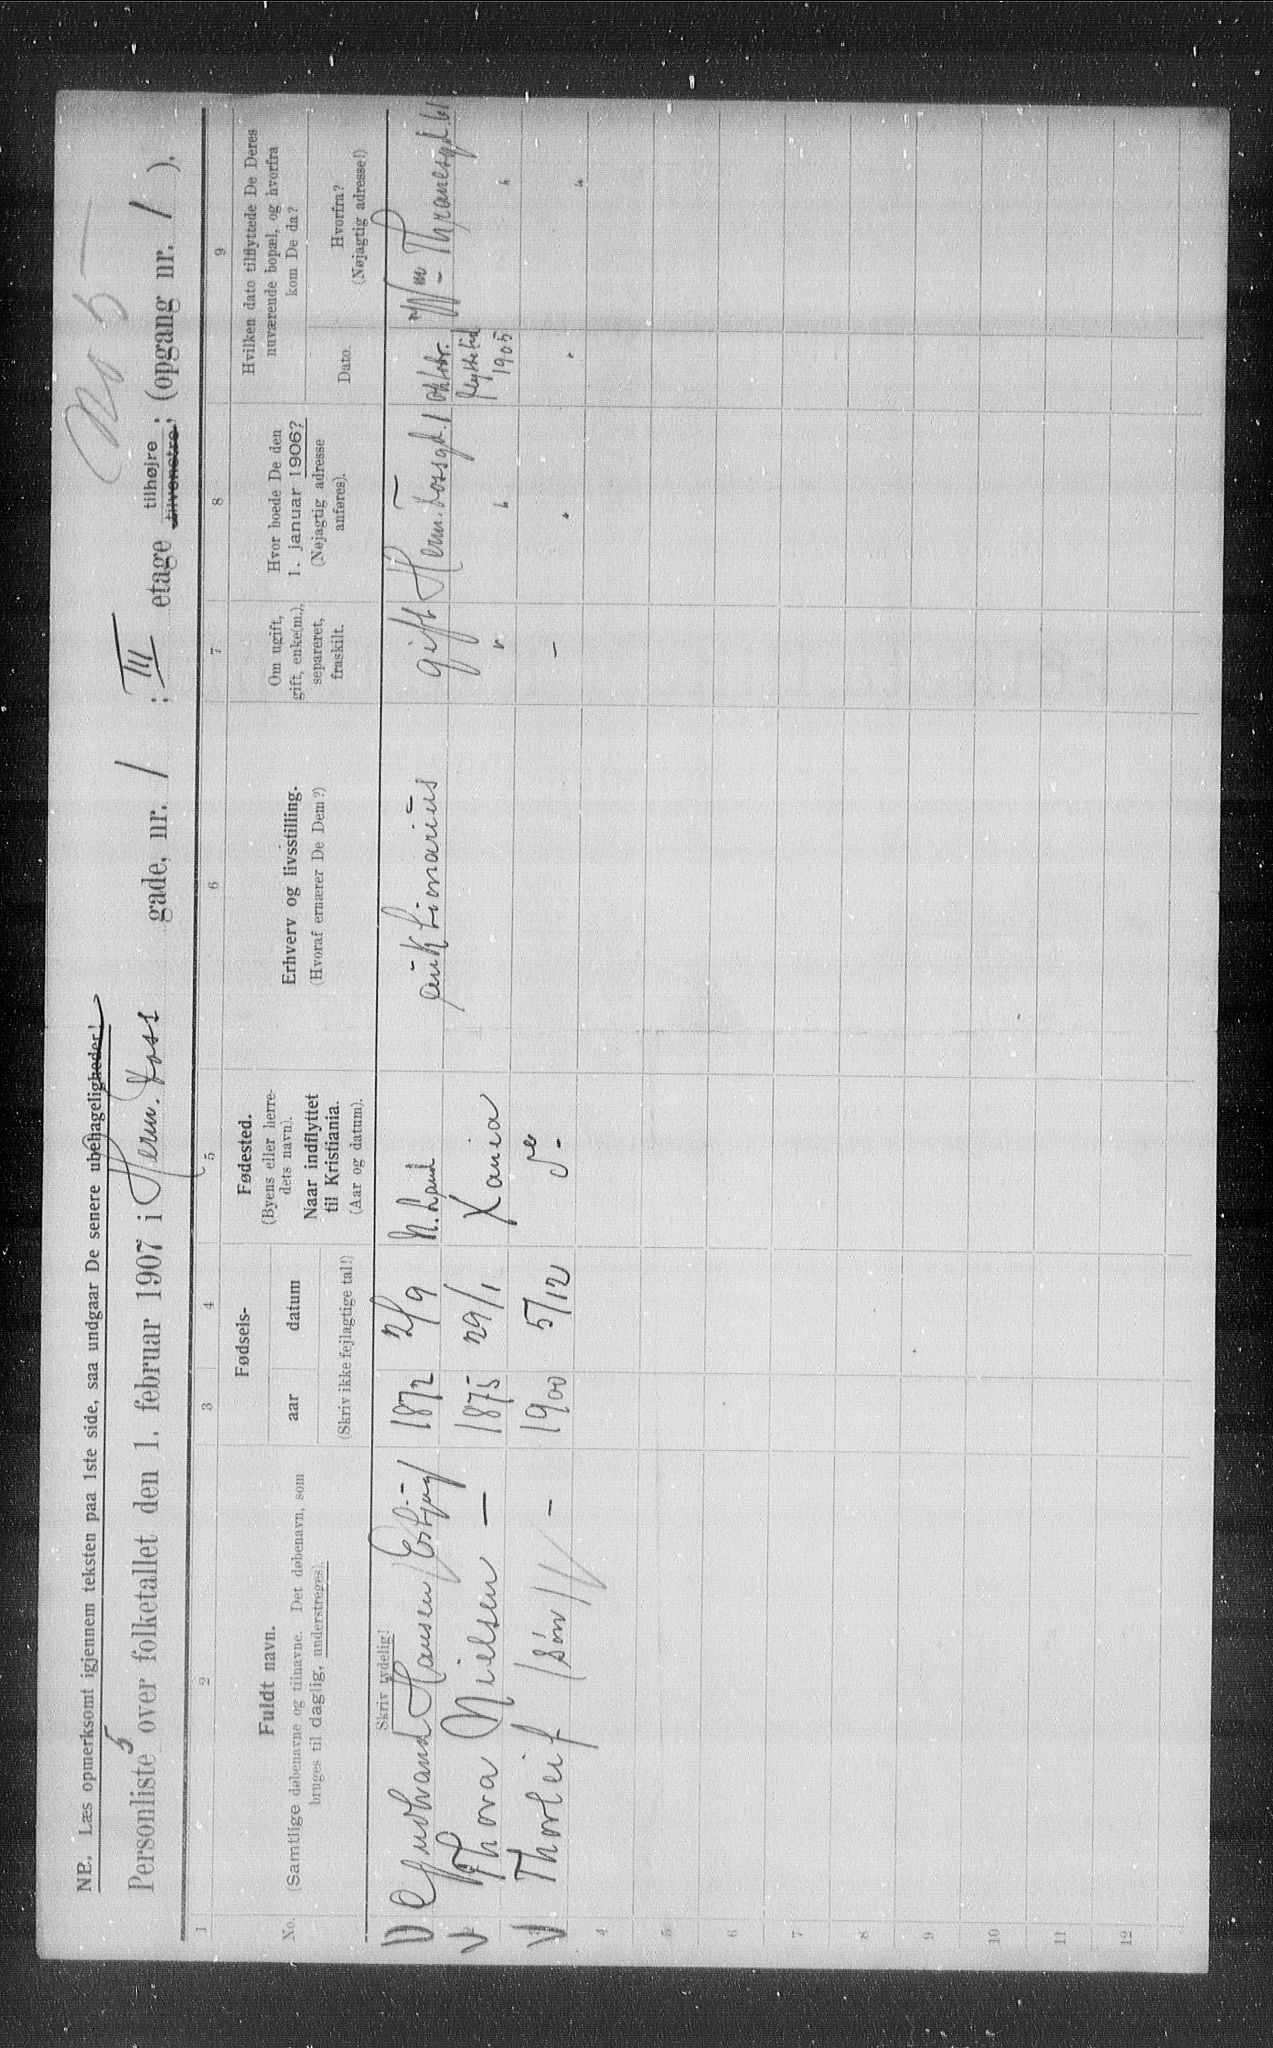 No 5
NB. Læs opmerksomt igjennem teksten paa 1ste side, saa undgaar De senere ubehageligheder!
Personliste 5 over folketallet den 1. februar 1907 i Herm. Foss gade, nr. 1 ; III etage tilhøjre ; (opgang nr. 1 ).
tilvenstre;
1 2 3 4 5 6 7 8 9
No.
Fuldt navn.
(Samtlige døbenavne og tilnavne. Det døbenavn, som
bruges til daglig, understreges).
Fødsels-
aar datum
(Skriv ikke fejlagtige tal!)
Fødested.
(Byens eller herre-
dets navn).
Naar indflyttet
til Kristiania.
(Aar og datum).
Erhverv og livsstilling.
(Hvoraf ernærer De Dem?)
Om ugift,
gift, enke(m.),
separeret,
fraskilt.
Hvor boede De den
1. januar 1906?
(Nøjagtig adresse
anføres).
Hvilken dato tilflyttede De Deres
nuværende bopæl, og hvorfra
kom De da?
Dato.
Hvorfra?
(Nøjagtig adresse!)
Skriv tydelig!
1 Gudbrand Hansen Esbjug 1872 2/9 N. Land auktionarius gift Herm. Fossgd. 1 oktobr. flyttetid 1905 Wm Thranesgd. 61
2 Thora Nielsen — 1875 29/1 Xania " " "
3 Thorleif /søn/ - 1900 5/12 do - - " " "
4
5
6
7
8
9
10
11
12